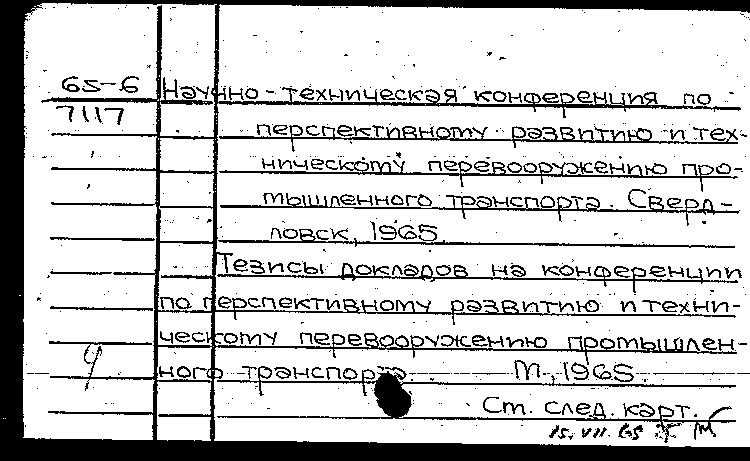 65-6
7117
Научно-техническая конференция по
перспективному развитию и тех-
ническому перевооружению про-
мышленного транспорта. Сверд-
ловск, 1965.
Тезисы докладов на конференции
по перспективному развитию и техни-
ческому перевооружению промышлен-
ного транспорта. М., 1965.
Ст. след. карт.
15.VII.65